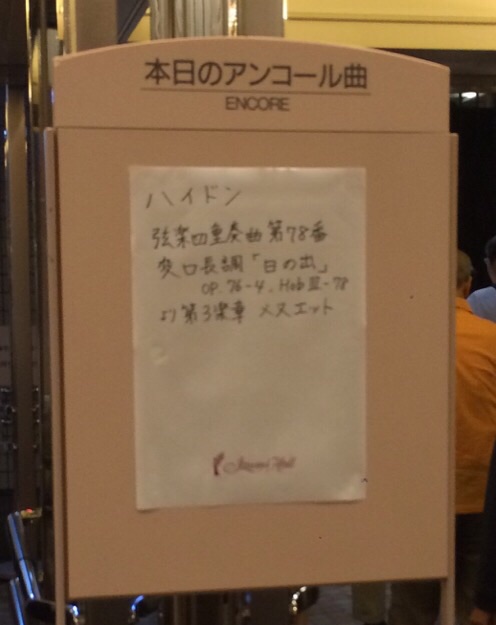 本日のアンコール曲
ENCORE
ハイドン
弦楽四重奏曲 第78番
変ロ長調「日の出」
OP.76-4, Hob Ⅲ-78
より第3楽章 メヌエット
Hall